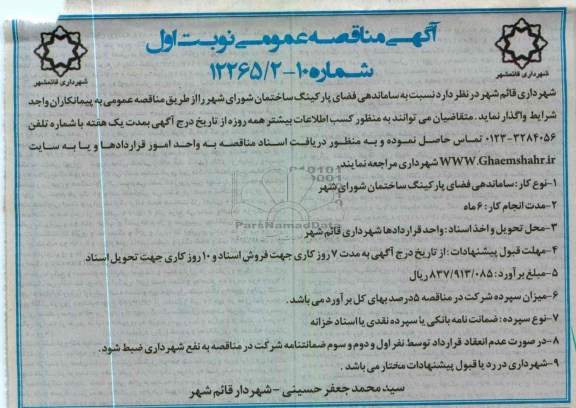 آگهی مناقصه عمومی نوبت اول
شماره ۱۰-۱۲۲۶۵/۲
شهرداری قائمشهر
شهرداری قائمشهر
شهرداری قائم شهر در نظر دارد نسبت به ساماندهی فضای پارکینگ ساختمان شورای شهر را از طریق مناقصه عمومی به پیمانکاران واجد
شرایط واگذار نماید. متقاضیان می توانند به منظور کسب اطلاعات بیشتر همه روزه از تاریخ درج آگهی بمدت یک هفته با شماره تلفن
۰۱۲۳-۳۲۸۴۰۵۶ تماس حاصل نموده و به منظور دریافت اسناد مناقصه به واحد امور قراردادها و یا به سایت
WWW.Ghaemshahr.ir شهرداری مراجعه نمایند.
۱-نوع کار: ساماندهی فضای پارکینگ ساختمان شورای شهر
۲-مدت انجام کار: ۶ ماه
۳-محل تحویل و اخذ اسناد: واحد قراردادها شهرداری قائم شهر
۴-مهلت قبول پیشنهادات: از تاریخ درج آگهی به مدت ۷ روز کاری جهت فروش اسناد و ۱۰ روز کاری جهت تحویل اسناد
۵-مبلغ برآورد: ۸۳۷/۹۱۳/۰۸۵ ریال
۶-میزان سپرده شرکت در مناقصه ۵درصد بهای کل برآورد می باشد.
۷-نوع سپرده: ضمانت نامه بانکی یا سپرده نقدی یا اسناد خزانه
۸-در صورت عدم انعقاد قرارداد توسط نفر اول و دوم و سوم ضمانتنامه شرکت در مناقصه به نفع شهرداری ضبط شود.
۹-شهرداری در رد یا قبول پیشنهادات مختار می باشد.
سید محمد جعفر حسینی - شهردار قائم شهر
ParsNamadData